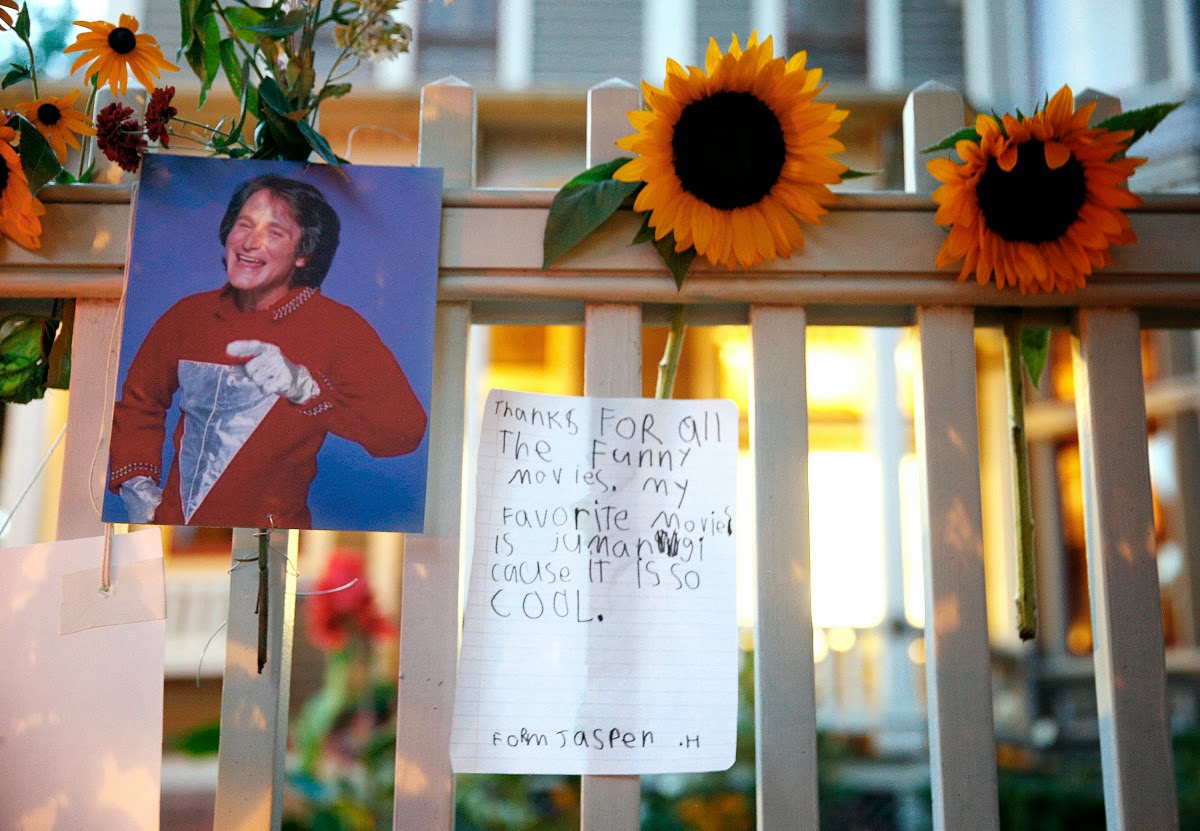 Thanks FOR all
The Funny
movies. my
FAVORITE movies
is jumangi
cause IT is so
COOL.
FORM JASPER .H